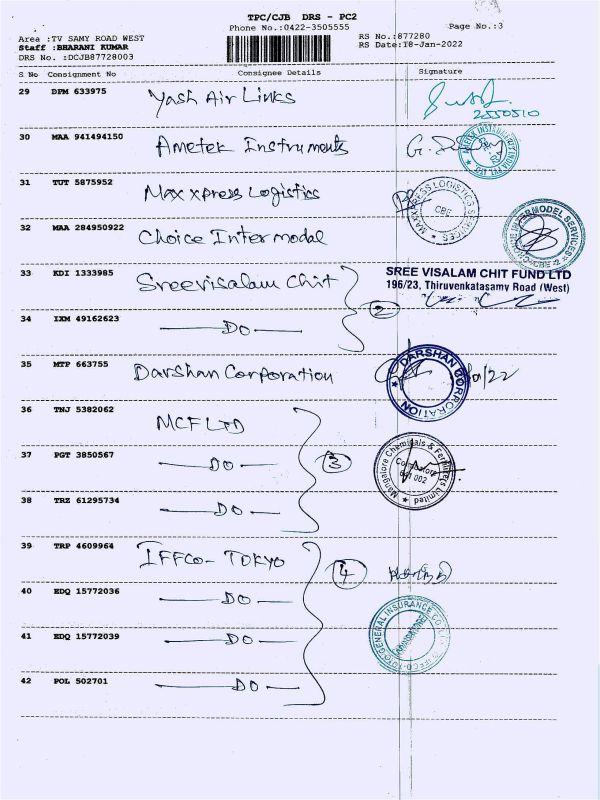 TPC/CJB DRS - PC2
Phone No.:0422-3505555 Page No.:3
Area :TV SAMY ROAD WEST RS No.:877280
Staff :BHARANI KUMAR RS Date:18-Jan-2022
DRS No. :DCJB87728003
S No Consignment No Consignee Details Signature
29 DPM 633975 Yash Air Links
2550510
30 MAA 941494150 Ametek Instruments
31 TUT 5875952 Maxxpress Logistics
MAXXPRESS LOGISTICS SERVICES CBE
32 MAA 284950922 Choice Intermodal
CHOICE INTERMODEL SERVICES CBE-2
33 KDI 1333985 Sreevisalam Chit
SREE VISALAM CHIT FUND LTD
196/23, Thiruvenkatasamy Road (West)
34 IXM 49162623 DO 2
35 MTP 663755 Darshan Corporation
DARSHAN CORPORATION
36 TNJ 5382062 MCF LTD
37 PGT 3850567 DO 3
Mangalore Chemicals & Fertilizers Limited Coimbatore 641 002
38 TRZ 61295734 DO
39 TRP 4609964 IFFCO- TOKYO 4
40 EDQ 15772036 DO
41 EDQ 15772039 DO
42 POL 502701 DO